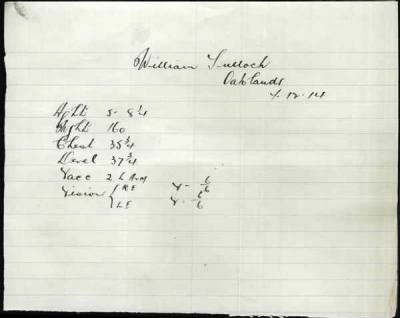 William Tulloch
Oaklands
4.12.14
Hght 5-8¼
Wght 160
Chest 35¾
Devel 37¾
Vacc 2 L Arm
Vision { R E V- 6/6
L E V- 6/6